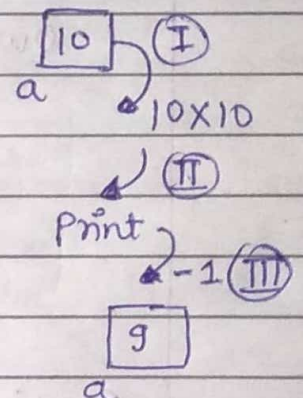 10 I
a
10×10
II
Print
-1 III
9
a